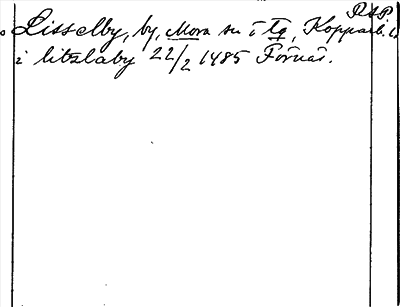 RAP
Lisselby, by, Mora sn i tg, Kopparb. l.
i litzlaby 22/2 1485 Fornäs.